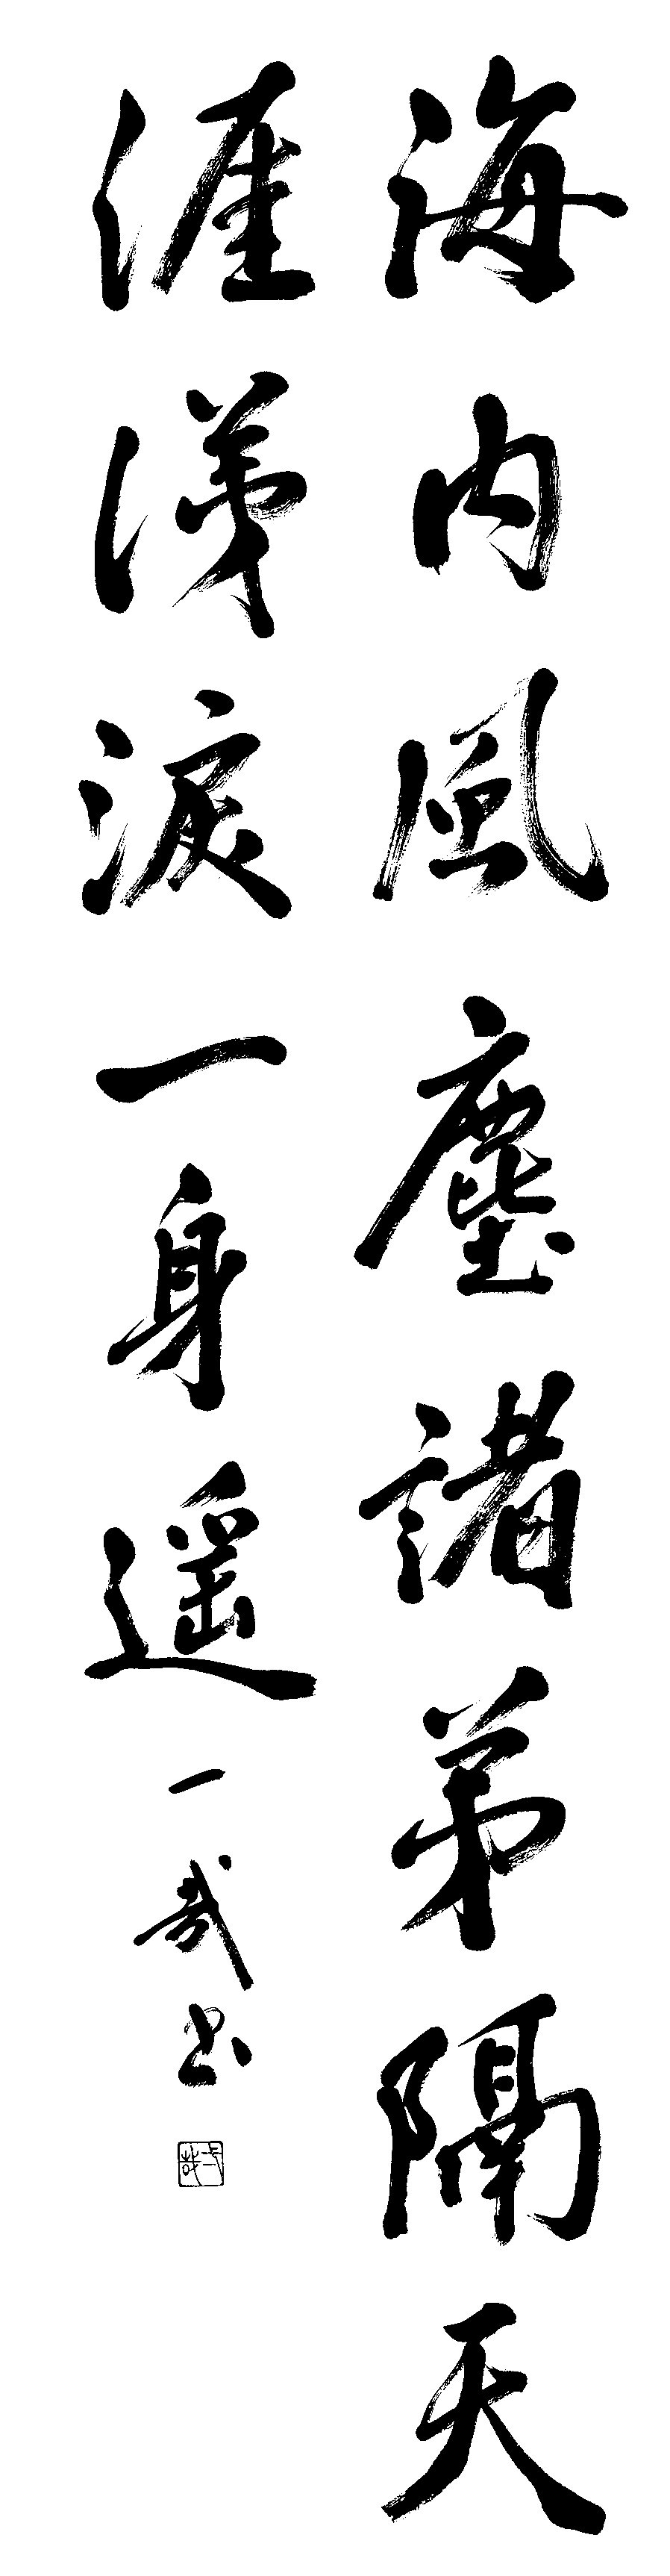 海内風塵諸弟隔天
涯涕淚一身遥
一哉书